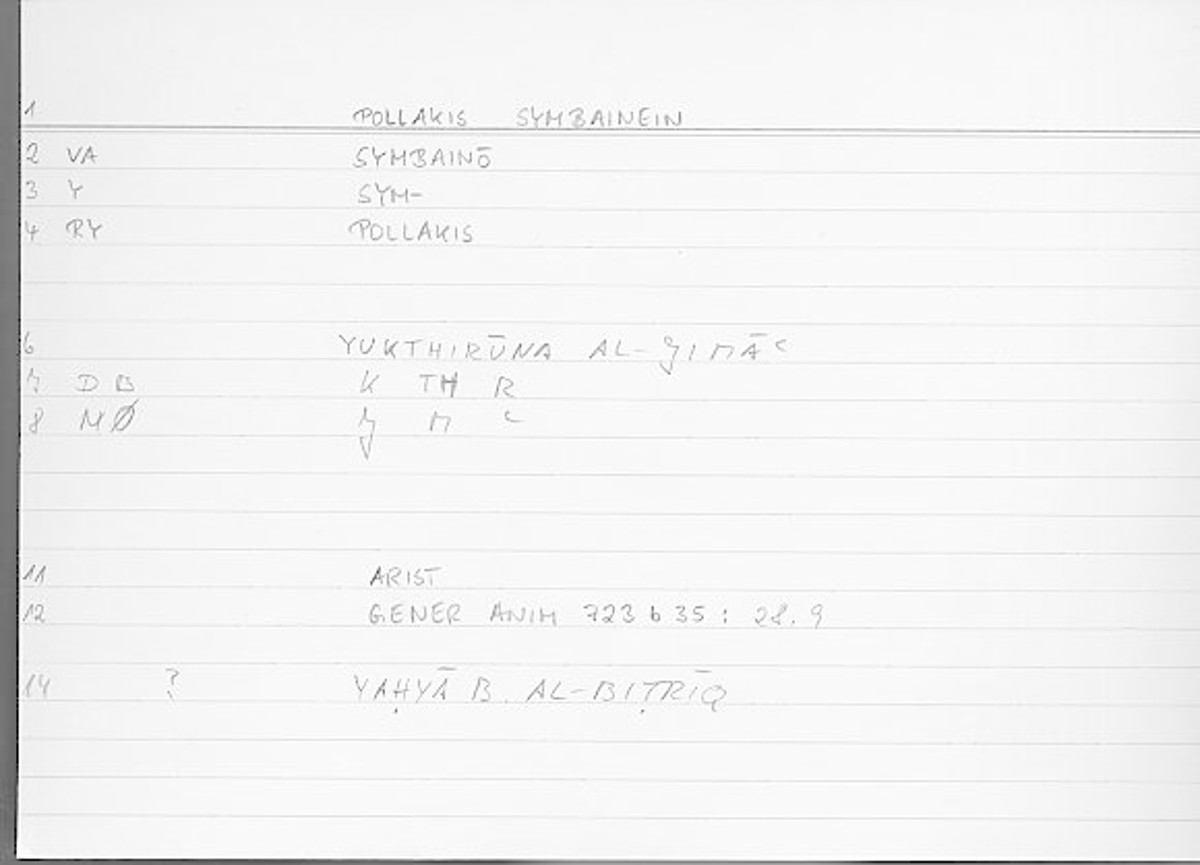 1 POLLAKIS SYMBAINEIN
2 VA SYMBAINŌ
3 Y SYM-
4 RY POLLAKIS
6 YUKTHIRŪNA AL-ǦIMĀʿ
7 D B K TH R
8 MØ Ǧ M ʿ
11 ARIST
12 GENER ANIM 723 b 35 : 28.9
14 ? YAḤYĀ B. AL-BIṬRĪQ